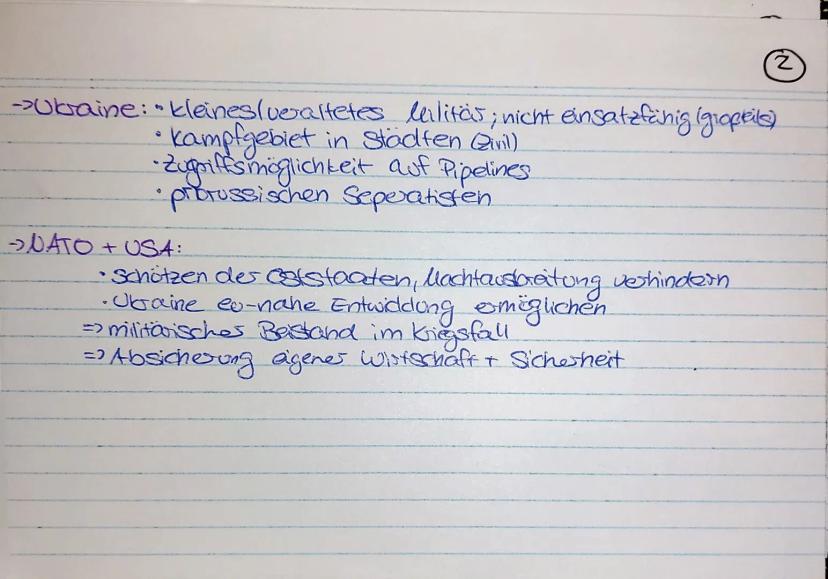 2
→Ukraine: • kleines/veraltetes Militär; nicht einsatzfähig (großteils)
• Kampfgebiet in Städten (Zivil)
• Zugriffsmöglichkeit auf Pipelines
• prorussischen Seperatisten
→NATO + USA:
• Schützen der Oststaaten, Machtausbreitung verhindern
• Ukraine eu-nahe Entwicklung ermöglichen
=> militärisches Beistand im Kriegsfall
=> Absicherung eigener Wirtschaft + Sicherheit